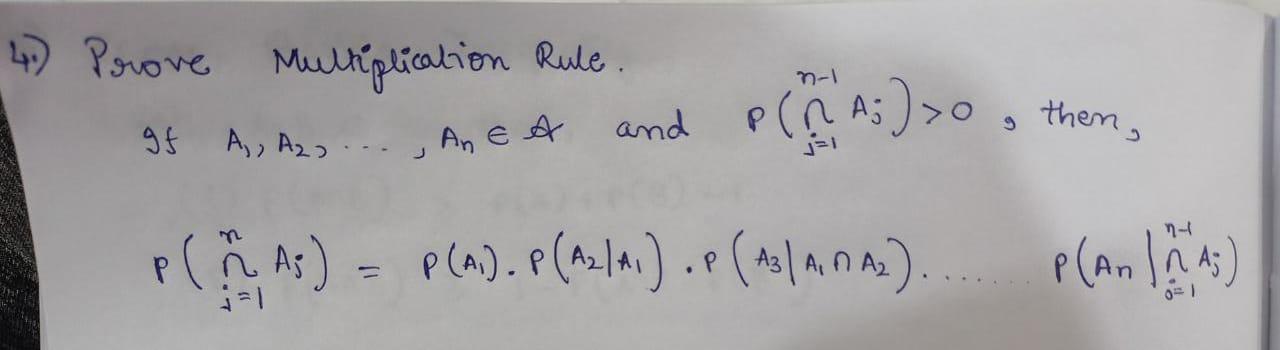 4.) Prove Multiplication Rule.
If A₁, A₂, ..., Aₙ ∈ 𝒜 and P(⋂ⱼ₌₁ⁿ⁻¹ Aⱼ) > 0, then,
P(⋂ⱼ₌₁ⁿ Aⱼ) = P(A₁). P(A₂|A₁) . P(A₃|A₁∩A₂)....... P(Aₙ|⋂ⱼ₌₁ⁿ⁻¹ Aⱼ)